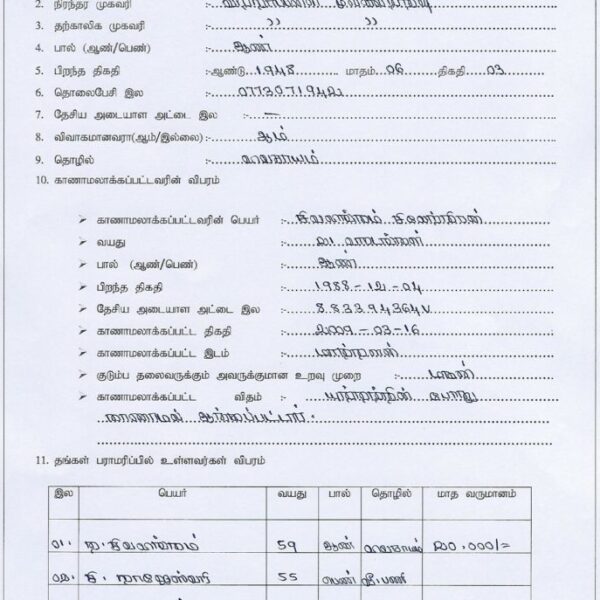 2. நிரந்தர முகவரி
3. தற்காலிக முகவரி :- ,, ,,
4. பால் (ஆண்/பெண்) :- ஆண்
5. பிறந்த திகதி :-ஆண்டு 1948 மாதம் 06 திகதி 03
6. தொலைபேசி இல :-
7. தேசிய அடையாள அட்டை இல :- —
8. விவாகமானவரா(ஆம்/இல்லை):- ஆம்
9. தொழில் :- விவசாயம்
10. காணாமலாக்கப்பட்டவரின் விபரம்
➢ காணாமலாக்கப்பட்டவரின் பெயர் :-
➢ வயது :-
➢ பால் (ஆண்/பெண்) :- ஆண்
➢ பிறந்த திகதி :- 1988-12-04
➢ தேசிய அடையாள அட்டை இல :- 883394364V
➢ காணாமலாக்கப்பட்ட திகதி :- 2009-03-16
➢ காணாமலாக்கப்பட்ட இடம் :- மாத்தளன்
➢ குடும்ப தலைவருக்கும் அவருக்குமான உறவு முறை :- மகன்
➢ காணாமலாக்கப்பட்ட விதம் :- யுத்தத்தின் போது
காணாமல் ஆக்கப்பட்டார்.
11. தங்கள் பராமரிப்பில் உள்ளவர்கள் விபரம்
இல பெயர் வயது பால் தொழில் மாத வருமானம்
01. 59 ஆண் விவசாயம் 20.000/=
02. சி. நாகேஸ்வரி 55 பெண் வீ.பணி